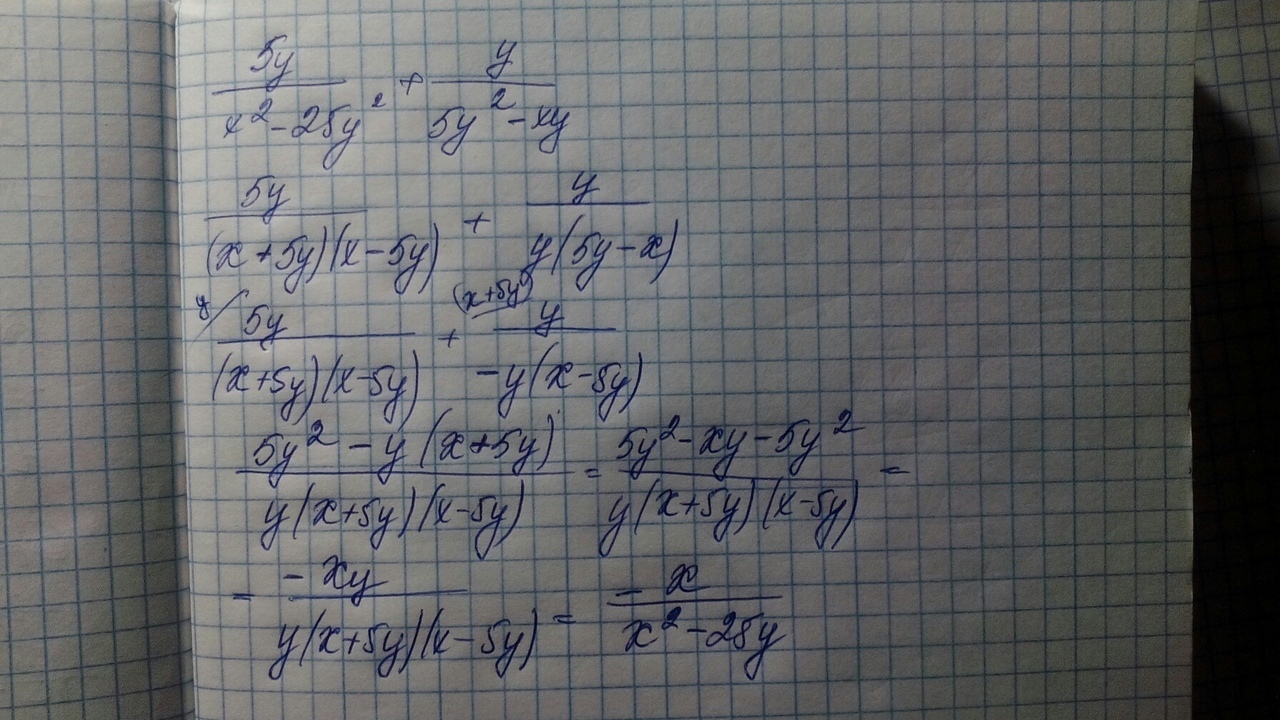 5y/(x²-25y²) + y/(5y²-xy)
5y/((x+5y)(x-5y)) + y/(y(5y-x))
y/ 5y/((x+5y)(x-5y)) + (x+5y) y/(-y(x-5y))
(5y²-y(x+5y))/(y(x+5y)(x-5y)) = (5y²-xy-5y²)/(y(x+5y)(x-5y)) =
= -xy/(y(x+5y)(x-5y)) = -x/(x²-25y)